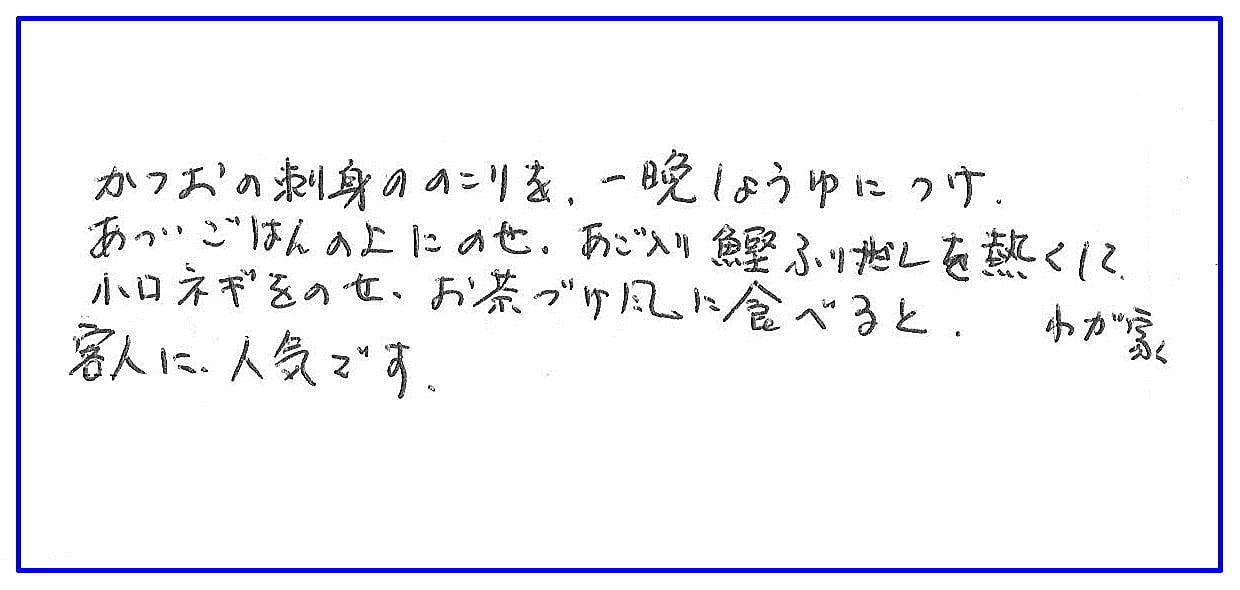 かつおの刺身ののこりを、一晩しょうゆにつけ、
あついごはんの上にのせ、あご入り鰹ふりだしを熱くして、
小口ネギをのせ、お茶づけ風に食べると、わが家
客人に、人気です。